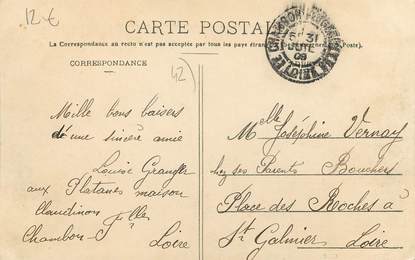 12€
CARTE POSTALE
La Correspondance au recto n'est pas acceptée par tous les pays étrangers
Poste).
CORRESPONDANCE
42
31
09
Mille bons baisers
d'une sincère amie
Louise Granger
aux Platanes maison
Chambon-F
Loire
Melle Joséphine Vernay
chez ses Parents Bouchers
Place des Roches à
St Galmier Loire